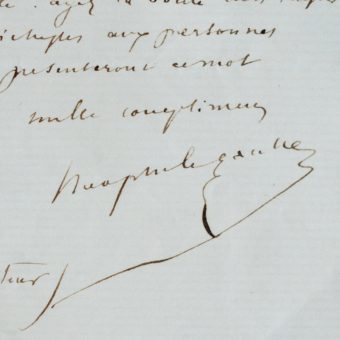 ayez la bonté
aux personnes
présenteront ce mot
mille compliments
théophile gautier
teur